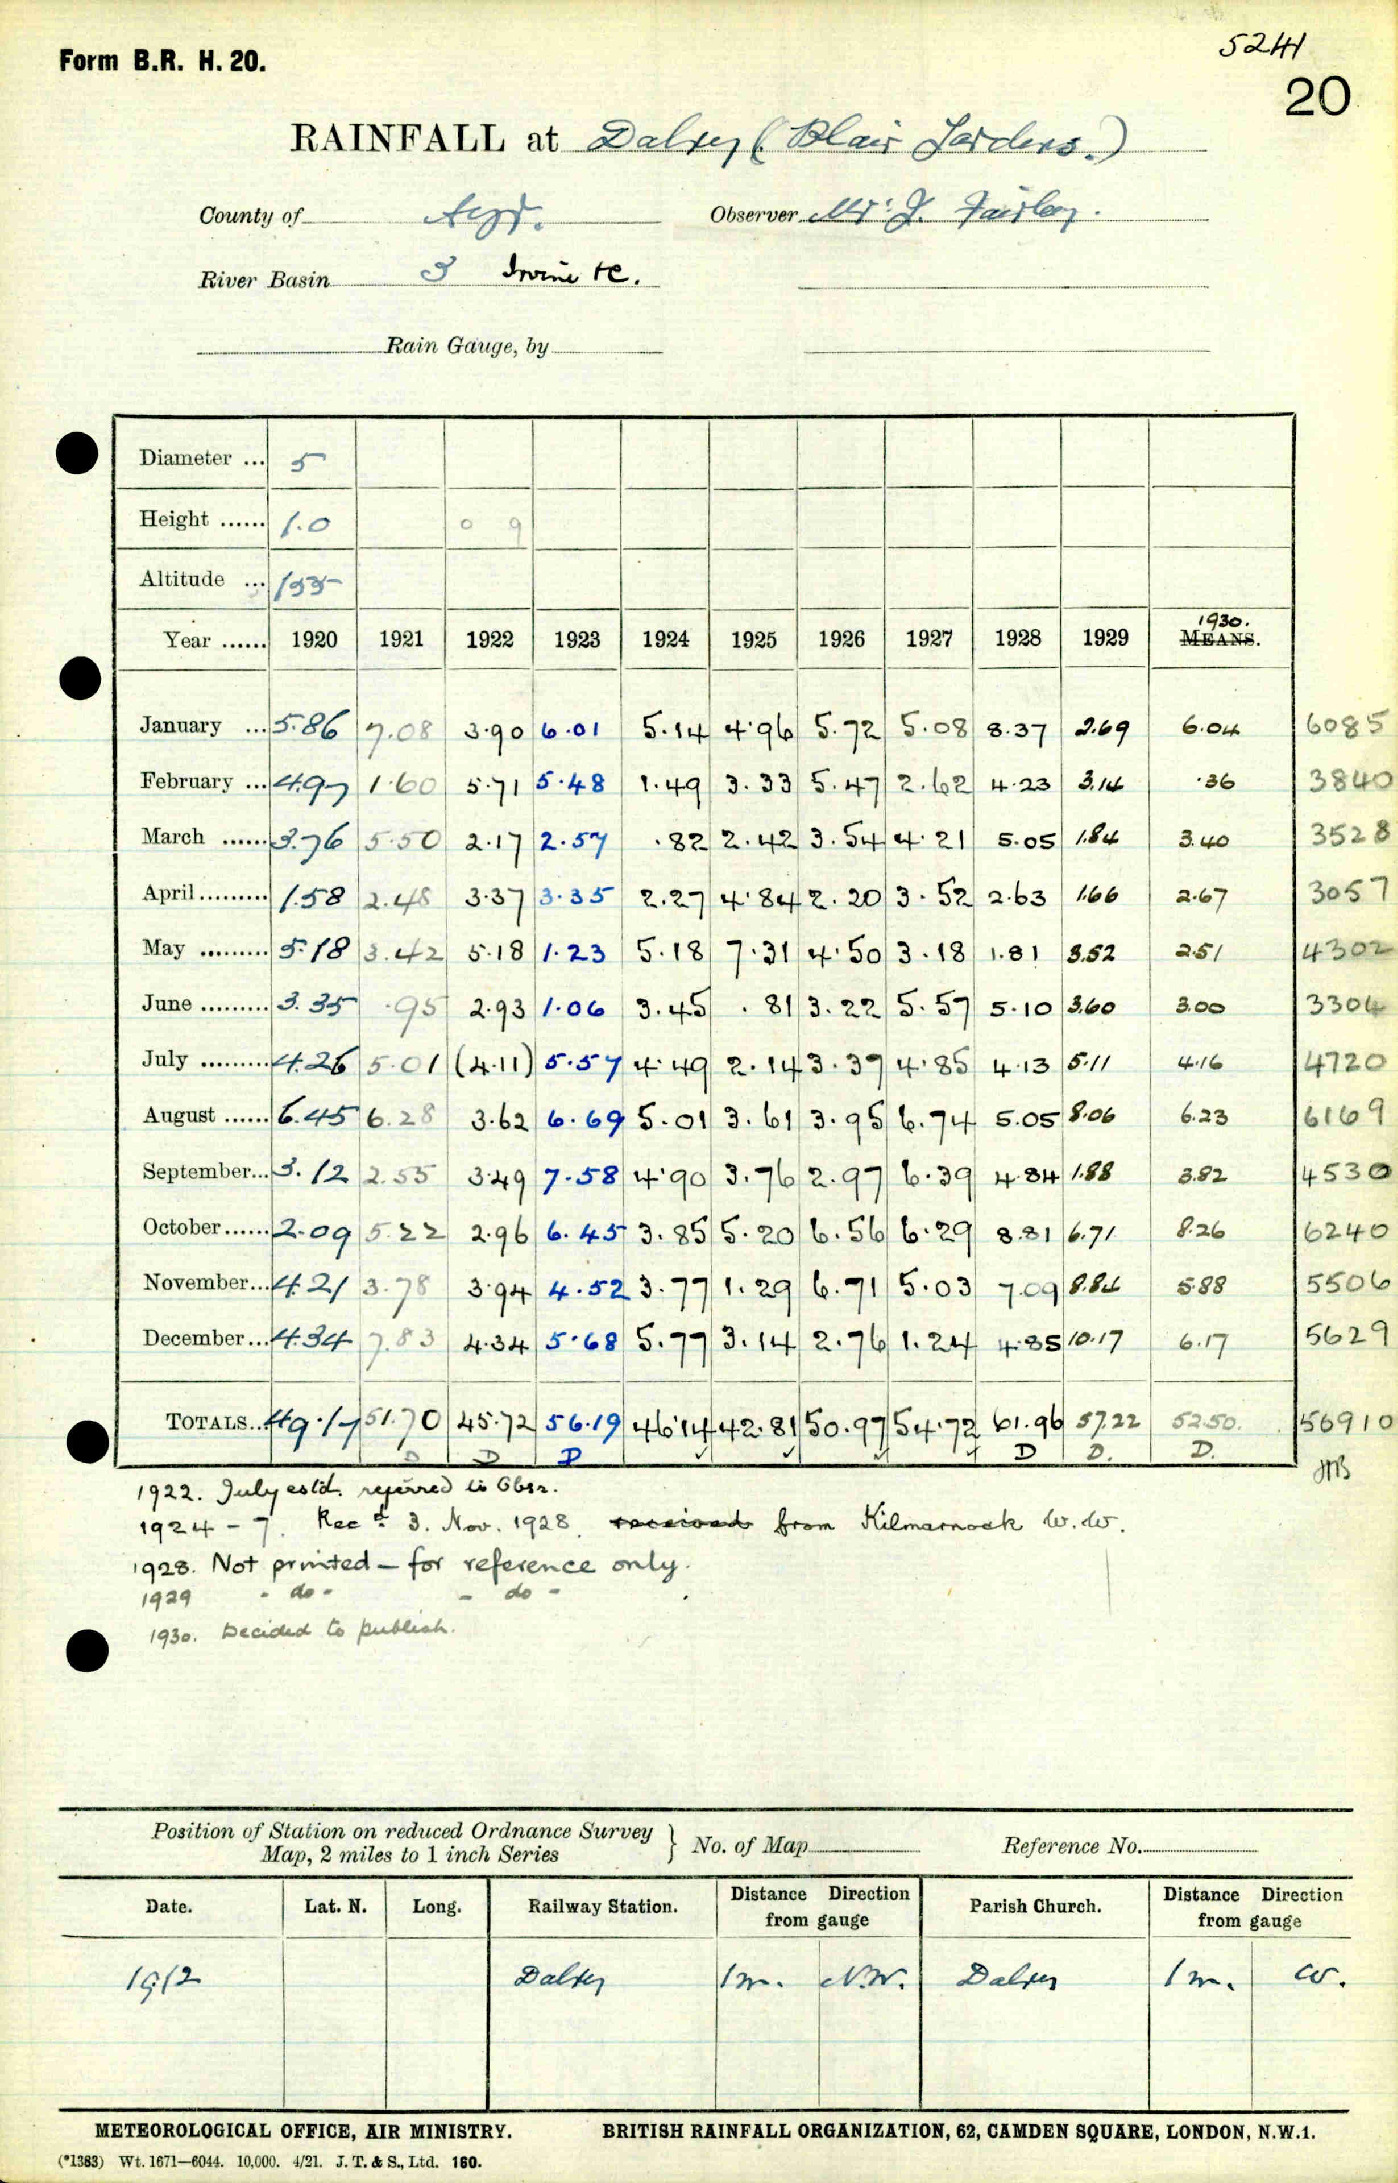 5241
Form B.R. H. 20.
20
RAINFALL at Dalry (Blair Gardens.)
County of Ayr. Observer Mr. J. Fairley.
River Basin 3 Irvine &c.
Rain Gauge, by
Diameter ... 5
Height ...... 1.0 0 9
Altitude ... 155
1930.
Year ...... 1920 1921 1922 1923 1924 1925 1926 1927 1928 1929 MEANS.
January ... 5.86 7.08 3.90 6.01 5.14 4.96 5.72 5.08 8.37 2.69 6.04 6085
February ... 4.97 1.60 5.71 5.48 1.49 3.33 5.47 2.62 4.23 3.14 .36 3840
March ...... 3.76 5.50 2.17 2.57 .82 2.42 3.54 4.21 5.05 1.84 3.40 3528
April ......... 1.58 2.48 3.37 3.35 2.27 4.84 2.20 3.52 2.63 1.66 2.67 3057
May ......... 5.18 3.42 5.18 1.23 5.18 7.31 4.50 3.18 1.81 3.52 2.51 4302
June ......... 3.35 .95 2.93 1.06 3.45 .81 3.22 5.57 5.10 3.60 3.00 3304
July ......... 4.26 5.01 (4.11) 5.57 4.49 2.14 3.37 4.85 4.13 5.11 4.16 4720
August ...... 6.45 6.28 3.62 6.69 5.01 3.61 3.95 6.74 5.05 8.06 6.23 6169
September... 3.12 2.55 3.49 7.58 4.90 3.76 2.97 6.39 4.84 1.88 3.82 4530
October ...... 2.09 5.22 2.96 6.45 3.85 5.20 6.56 6.29 8.81 6.71 8.26 6240
November... 4.21 3.78 3.94 4.52 3.77 1.29 6.71 5.03 7.09 8.84 5.88 5506
December... 4.34 7.83 4.34 5.68 5.77 3.14 2.76 1.24 4.85 10.17 6.17 5629
TOTALS... 49.17 51.70 45.72 56.19 46.14 42.81 50.97 54.72 61.96 57.22 52.50. 56910
D D D ✓ ✓ ✓ ✓ D D. D.
1922. July estd. referred to Obsr.
1924 - 7. Recd. 3. Nov. 1928. received from Kilmarnock W.W.
1928. Not printed - for reference only.
1929 - do - - do -
1930. Decided to publish.
Position of Station on reduced Ordnance Survey
Map, 2 miles to 1 inch Series } No. of Map Reference No.
Date. Lat. N. Long. Railway Station. Distance Direction from gauge Parish Church. Distance Direction from gauge
1912 Dalry 1 m. N.W. Dalry 1 m. W.
METEOROLOGICAL OFFICE, AIR MINISTRY. BRITISH RAINFALL ORGANIZATION, 62, CAMDEN SQUARE, LONDON, N.W.1.
(*1383) Wt. 1671—6044. 10,000. 4/21. J. T. & S., Ltd. 160.